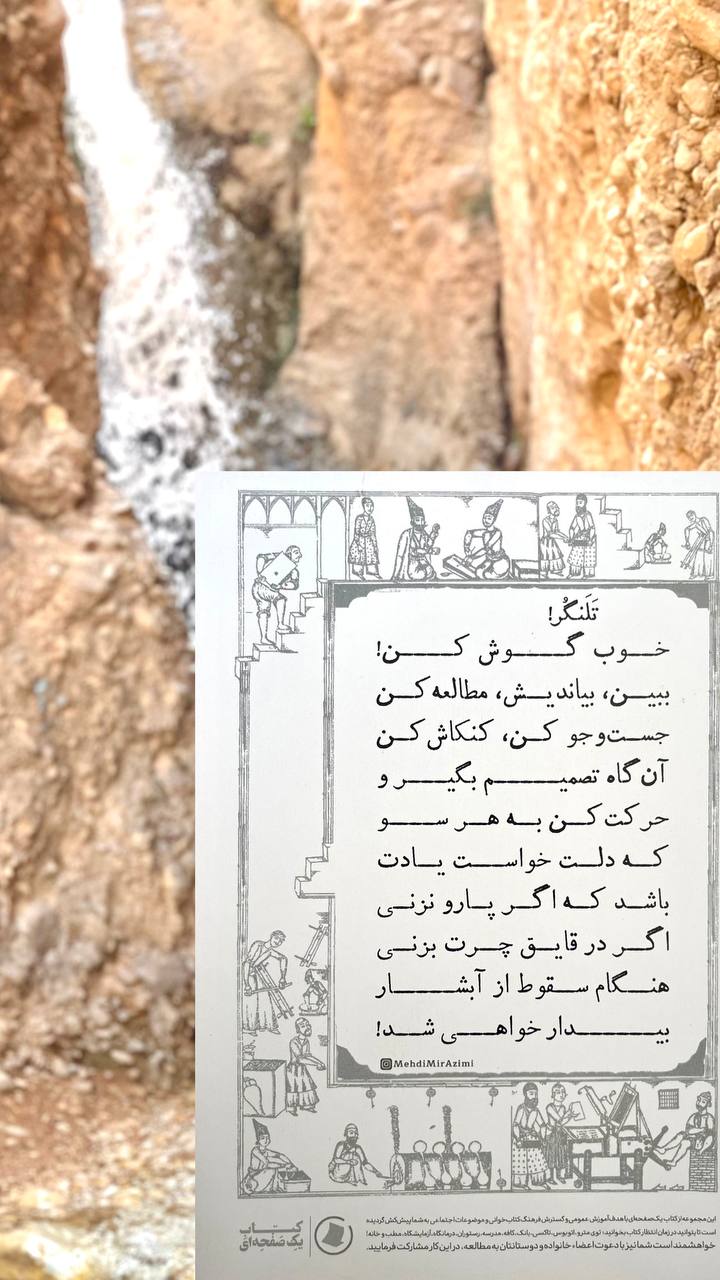 تَلَنگُر!
خوب گوش کن!
ببین، بیاندیش، مطالعه کن
جست‌وجو کن، کنکاش کن
آن گاه تصمیم بگیر و
حرکت کن به هر سو
که دلت خواست یادت
باشد که اگر پارو نزنی
اگر در قایق چرت بزنی
هنگام سقوط از آبشار
بیدار خواهی شد!
MehdiMirAzimi
این مجموعه از کتاب یک صفحه‌ای با هدف آموزش عمومی و گسترش فرهنگ کتاب‌خوانی و موضوعات اجتماعی به شما پیش‌کش گردیده
است تا بتوانید در زمان انتظار کتاب بخوانید؛ توی مترو، اتوبوس، تاکسی، بانک، کافه، مدرسه، رستوران، درمانگاه، آزمایشگاه، مطب و خانه!
خواهشمند است شما نیز با دعوت اعضاء، خانواده و دوستانتان به مطالعه، در این کار مشارکت فرمایید.
کتاب
یک صَفحِه‌ای